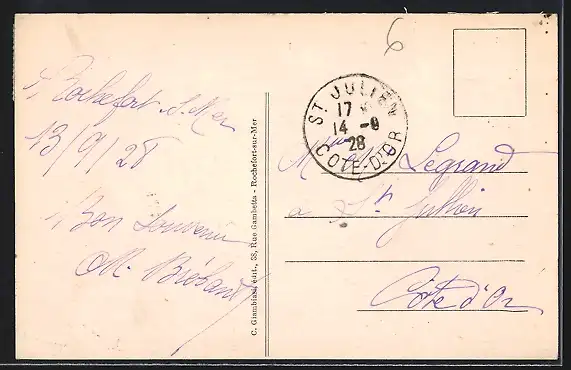 Rochefort s. Mer
13/9/28
Bon Souvenir
M.
C. Giambiasi édit., 38, Rue Gambetta - Rochefort-sur-Mer
6
ST JULIEN
17
14 -9
28
COTE-D'OR
Legrand
à St Jullien
Côte d'Or